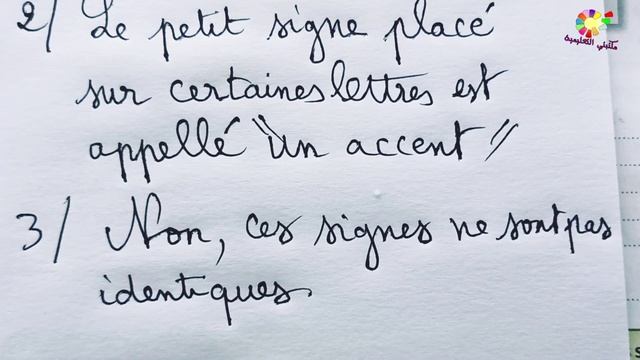 2/ Le petit signe placé
sur certaines lettres est
appellé "un accent"
3/ Non, ces signes ne sont pas
identiques.
مكتبتي التعليمية